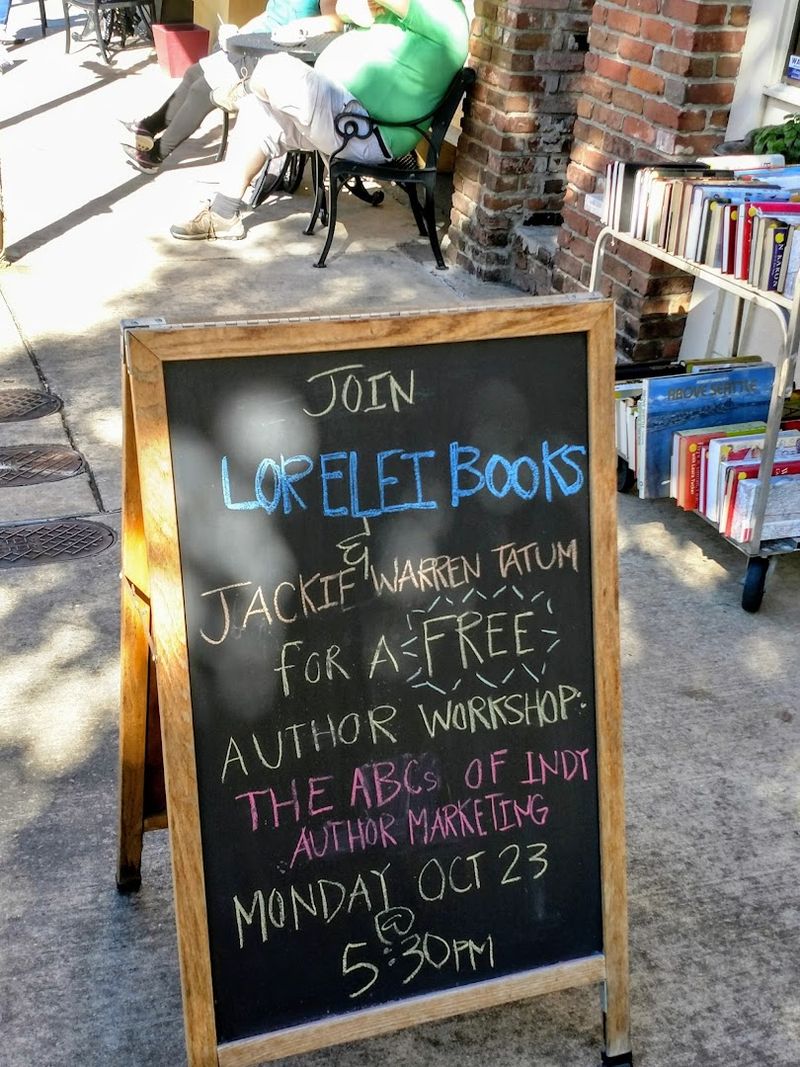 JOIN
LORELEI BOOKS
&
JACKIE WARREN TATUM
FOR A FREE
AUTHOR WORKSHOP:
THE ABCs OF INDY
AUTHOR MARKETING
MONDAY OCT 23
@
5:30PM
ABOVE SEATTLE